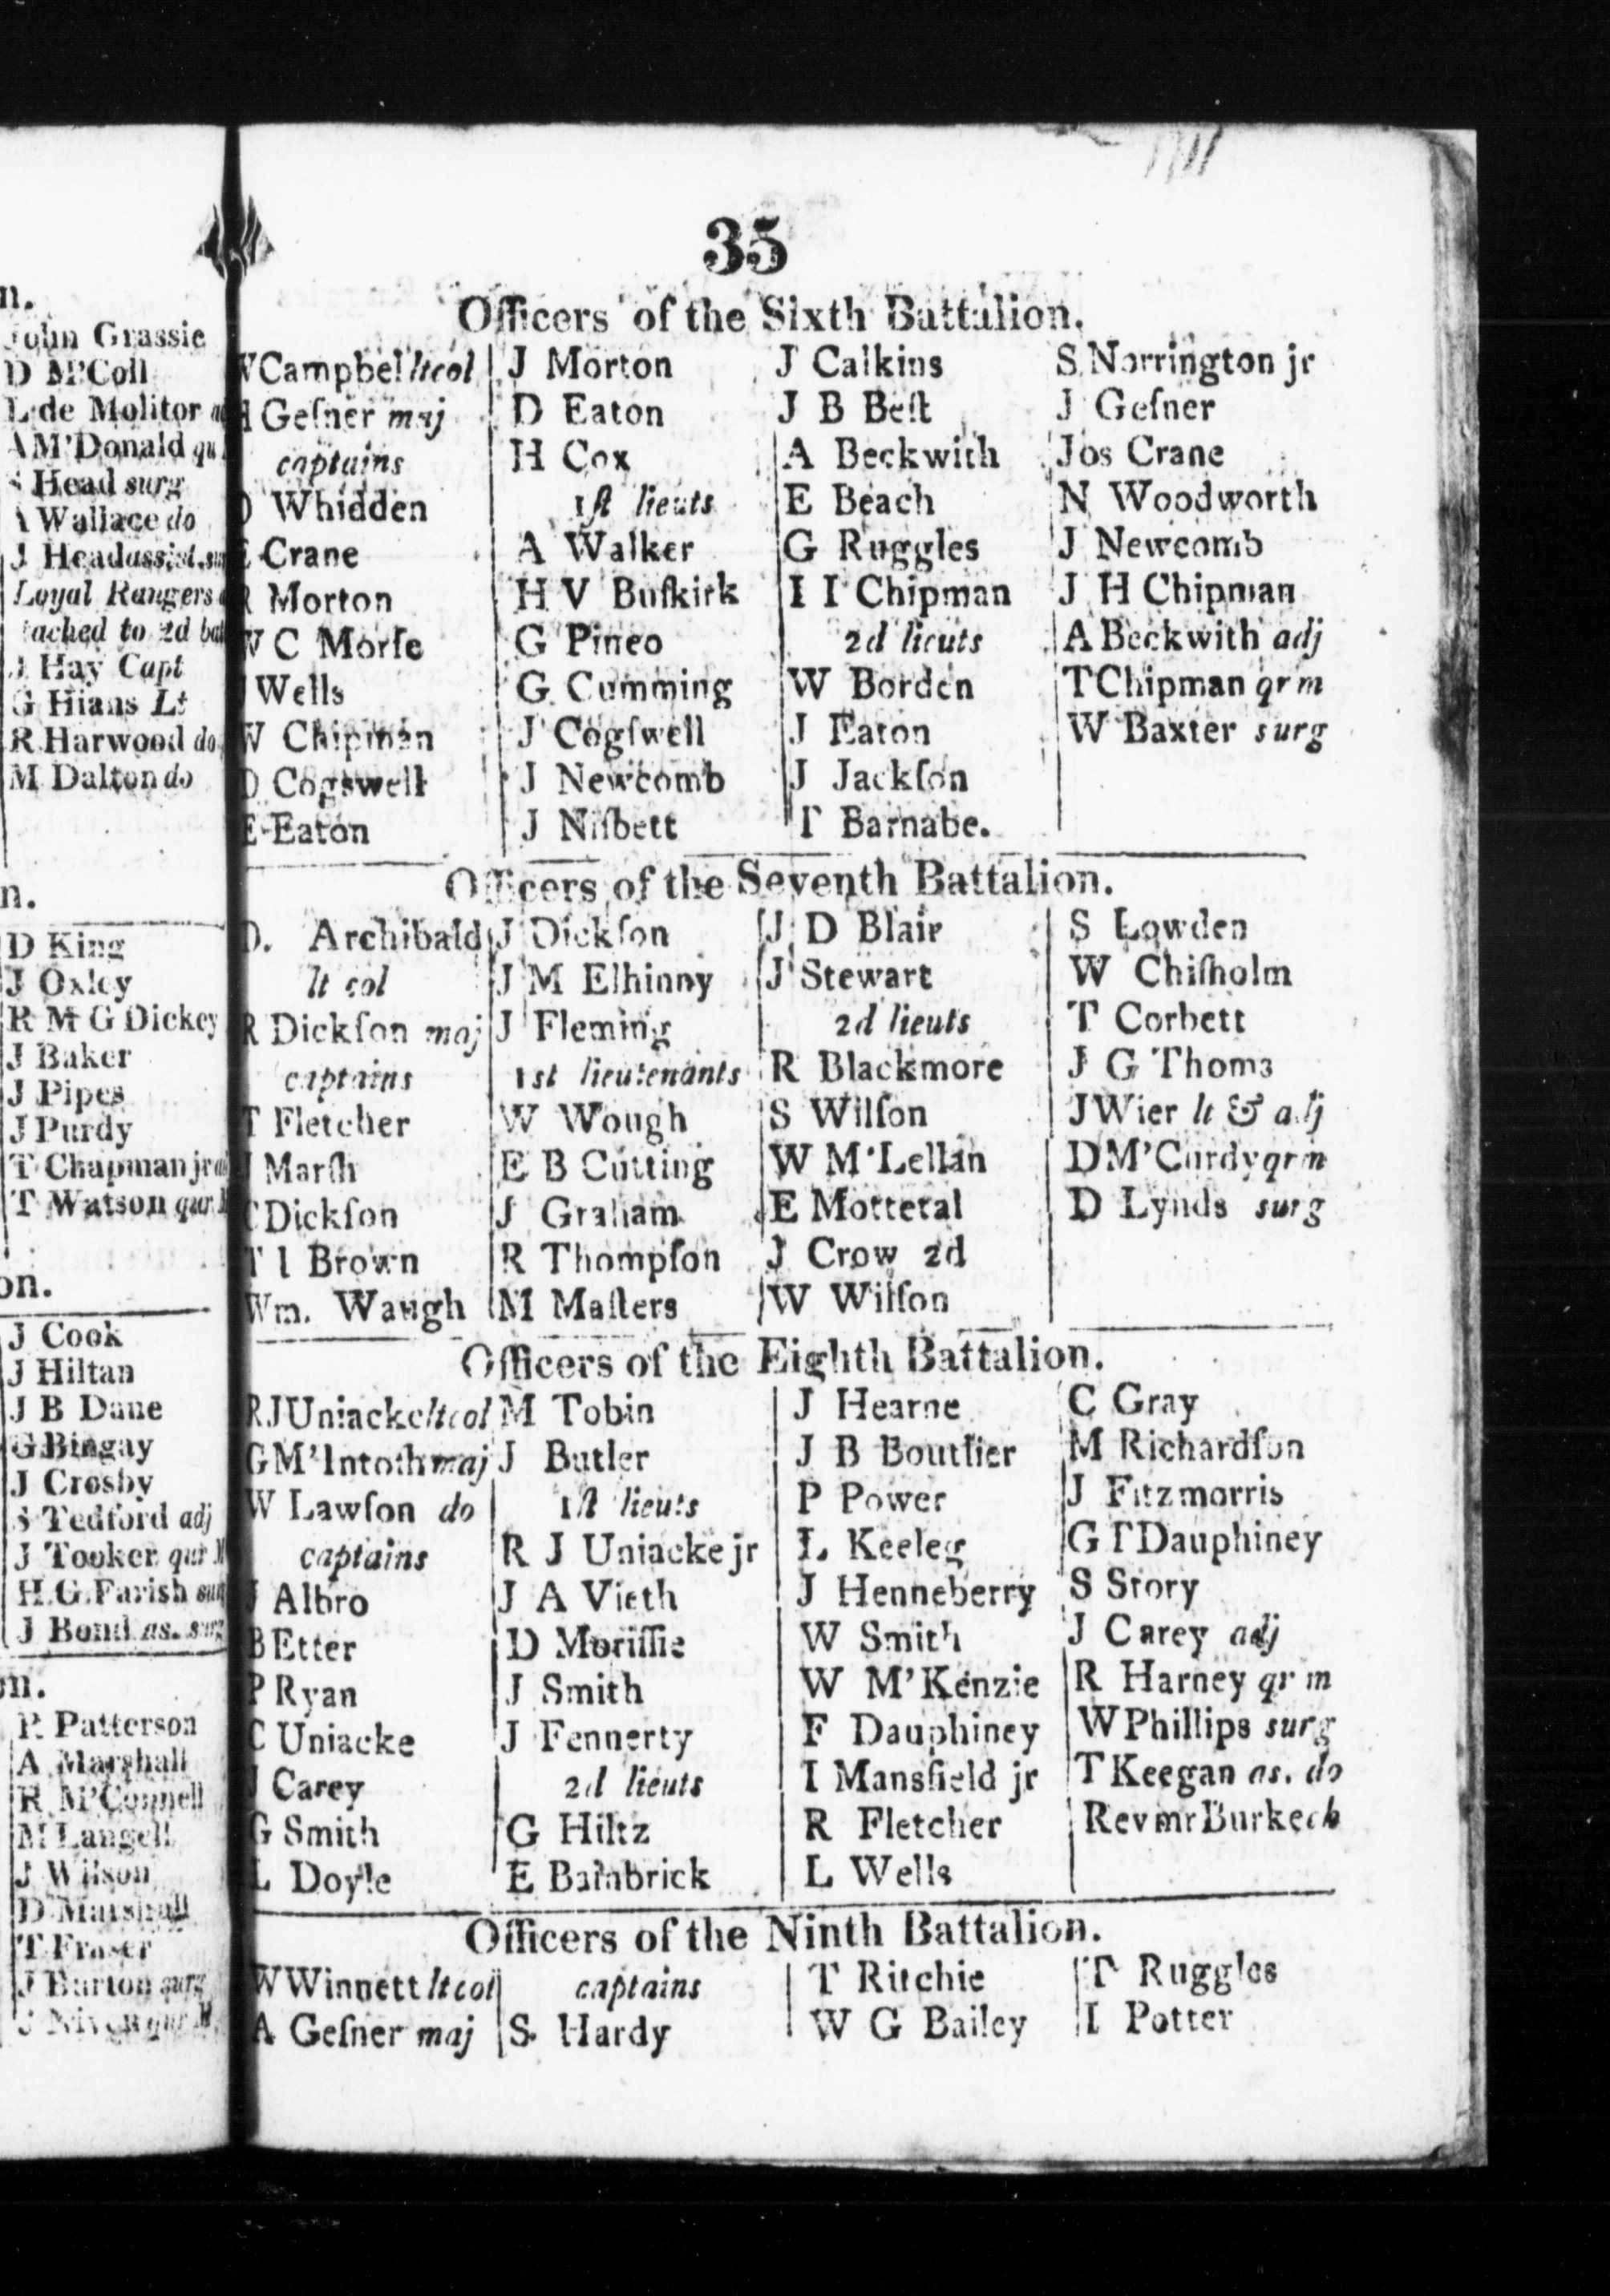 n.
John Grassie
D M'Coll
L de Molitor
A M'Donald qu
Head surg
Wallace do
J Head assist. su
Loyal Rangers
tached to 2d bat
J Hay Capt
G Hians Lt
R Harwood do
M Dalton do
n.
D King
J Oxley
R M G Dickey
J Baker
J Pipes
J Purdy
T Chapman jr
T Watson qur
on.
J Cook
J Hiltan
J B Dane
G Bingay
J Crosby
S Tedford adj
J Tooker qur M
H.G.Farish su
J Bond as. surg
on.
R Patterson
A Marshall
R M'Connell
M Langell
J Wilson
D Marshall
T Fraser
J Burton surg
J Niven qur M
35
Officers of the Sixth Battalion.
W Campbel lt col
H Geſner maj
captains
D Whidden
E Crane
R Morton
W C Morſe
J Wells
W Chipman
D Cogswell
E Eaton
J Morton
D Eaton
H Cox
1ſt lieuts
A Walker
H V Buſkirk
G Pineo
G Cumming
J Cogſwell
J Newcomb
J Niſbett
J Calkins
J B Beſt
A Beckwith
E Beach
G Ruggles
I I Chipman
2d lieuts
W Borden
J Eaton
J Jackſon
T Barnabe.
S Norrington jr
J Geſner
Jos Crane
N Woodworth
J Newcomb
J H Chipman
A Beckwith adj
T Chipman qr m
W Baxter surg
Officers of the Seventh Battalion.
D. Archibald
lt col
R Dickſon maj
captains
T Fletcher
J Marſh
C Dickſon
T I Brown
Wm. Waugh
J Dickſon
J M Elhinny
J Fleming
1st lieutenants
W Wough
E B Cutting
J Graham
R Thompſon
M Maſters
J D Blair
J Stewart
2d lieuts
R Blackmore
S Wilſon
W M'Lellan
E Motteral
J Crow 2d
W Wilſon
S Lowden
W Chiſholm
T Corbett
J G Thoms
J Wier lt & adj
D M'Curdy qr m
D Lynds surg
Officers of the Eighth Battalion.
R J Uniacke lt col
G M'Intoſh maj
W Lawſon do
captains
J Albro
B Etter
P Ryan
C Uniacke
J Carey
G Smith
L Doyle
M Tobin
J Butler
1ſt lieuts
R J Uniacke jr
J A Vieth
D Moriſſie
J Smith
J Fennerty
2d lieuts
G Hiltz
E Bambrick
J Hearne
J B Boutlier
P Power
L Keeleg
J Henneberry
W Smith
W M'Kenzie
F Dauphiney
I Mansfield jr
R Fletcher
L Wells
C Gray
M Richardſon
J Fitzmorris
G T Dauphiney
S Story
J Carey adj
R Harney qr m
W Phillips surg
T Keegan as. do
Rev mr Burke ch
Officers of the Ninth Battalion.
W Winnett lt col
A Geſner maj
captains
S. Hardy
T Ritchie
W G Bailey
T Ruggles
I Potter